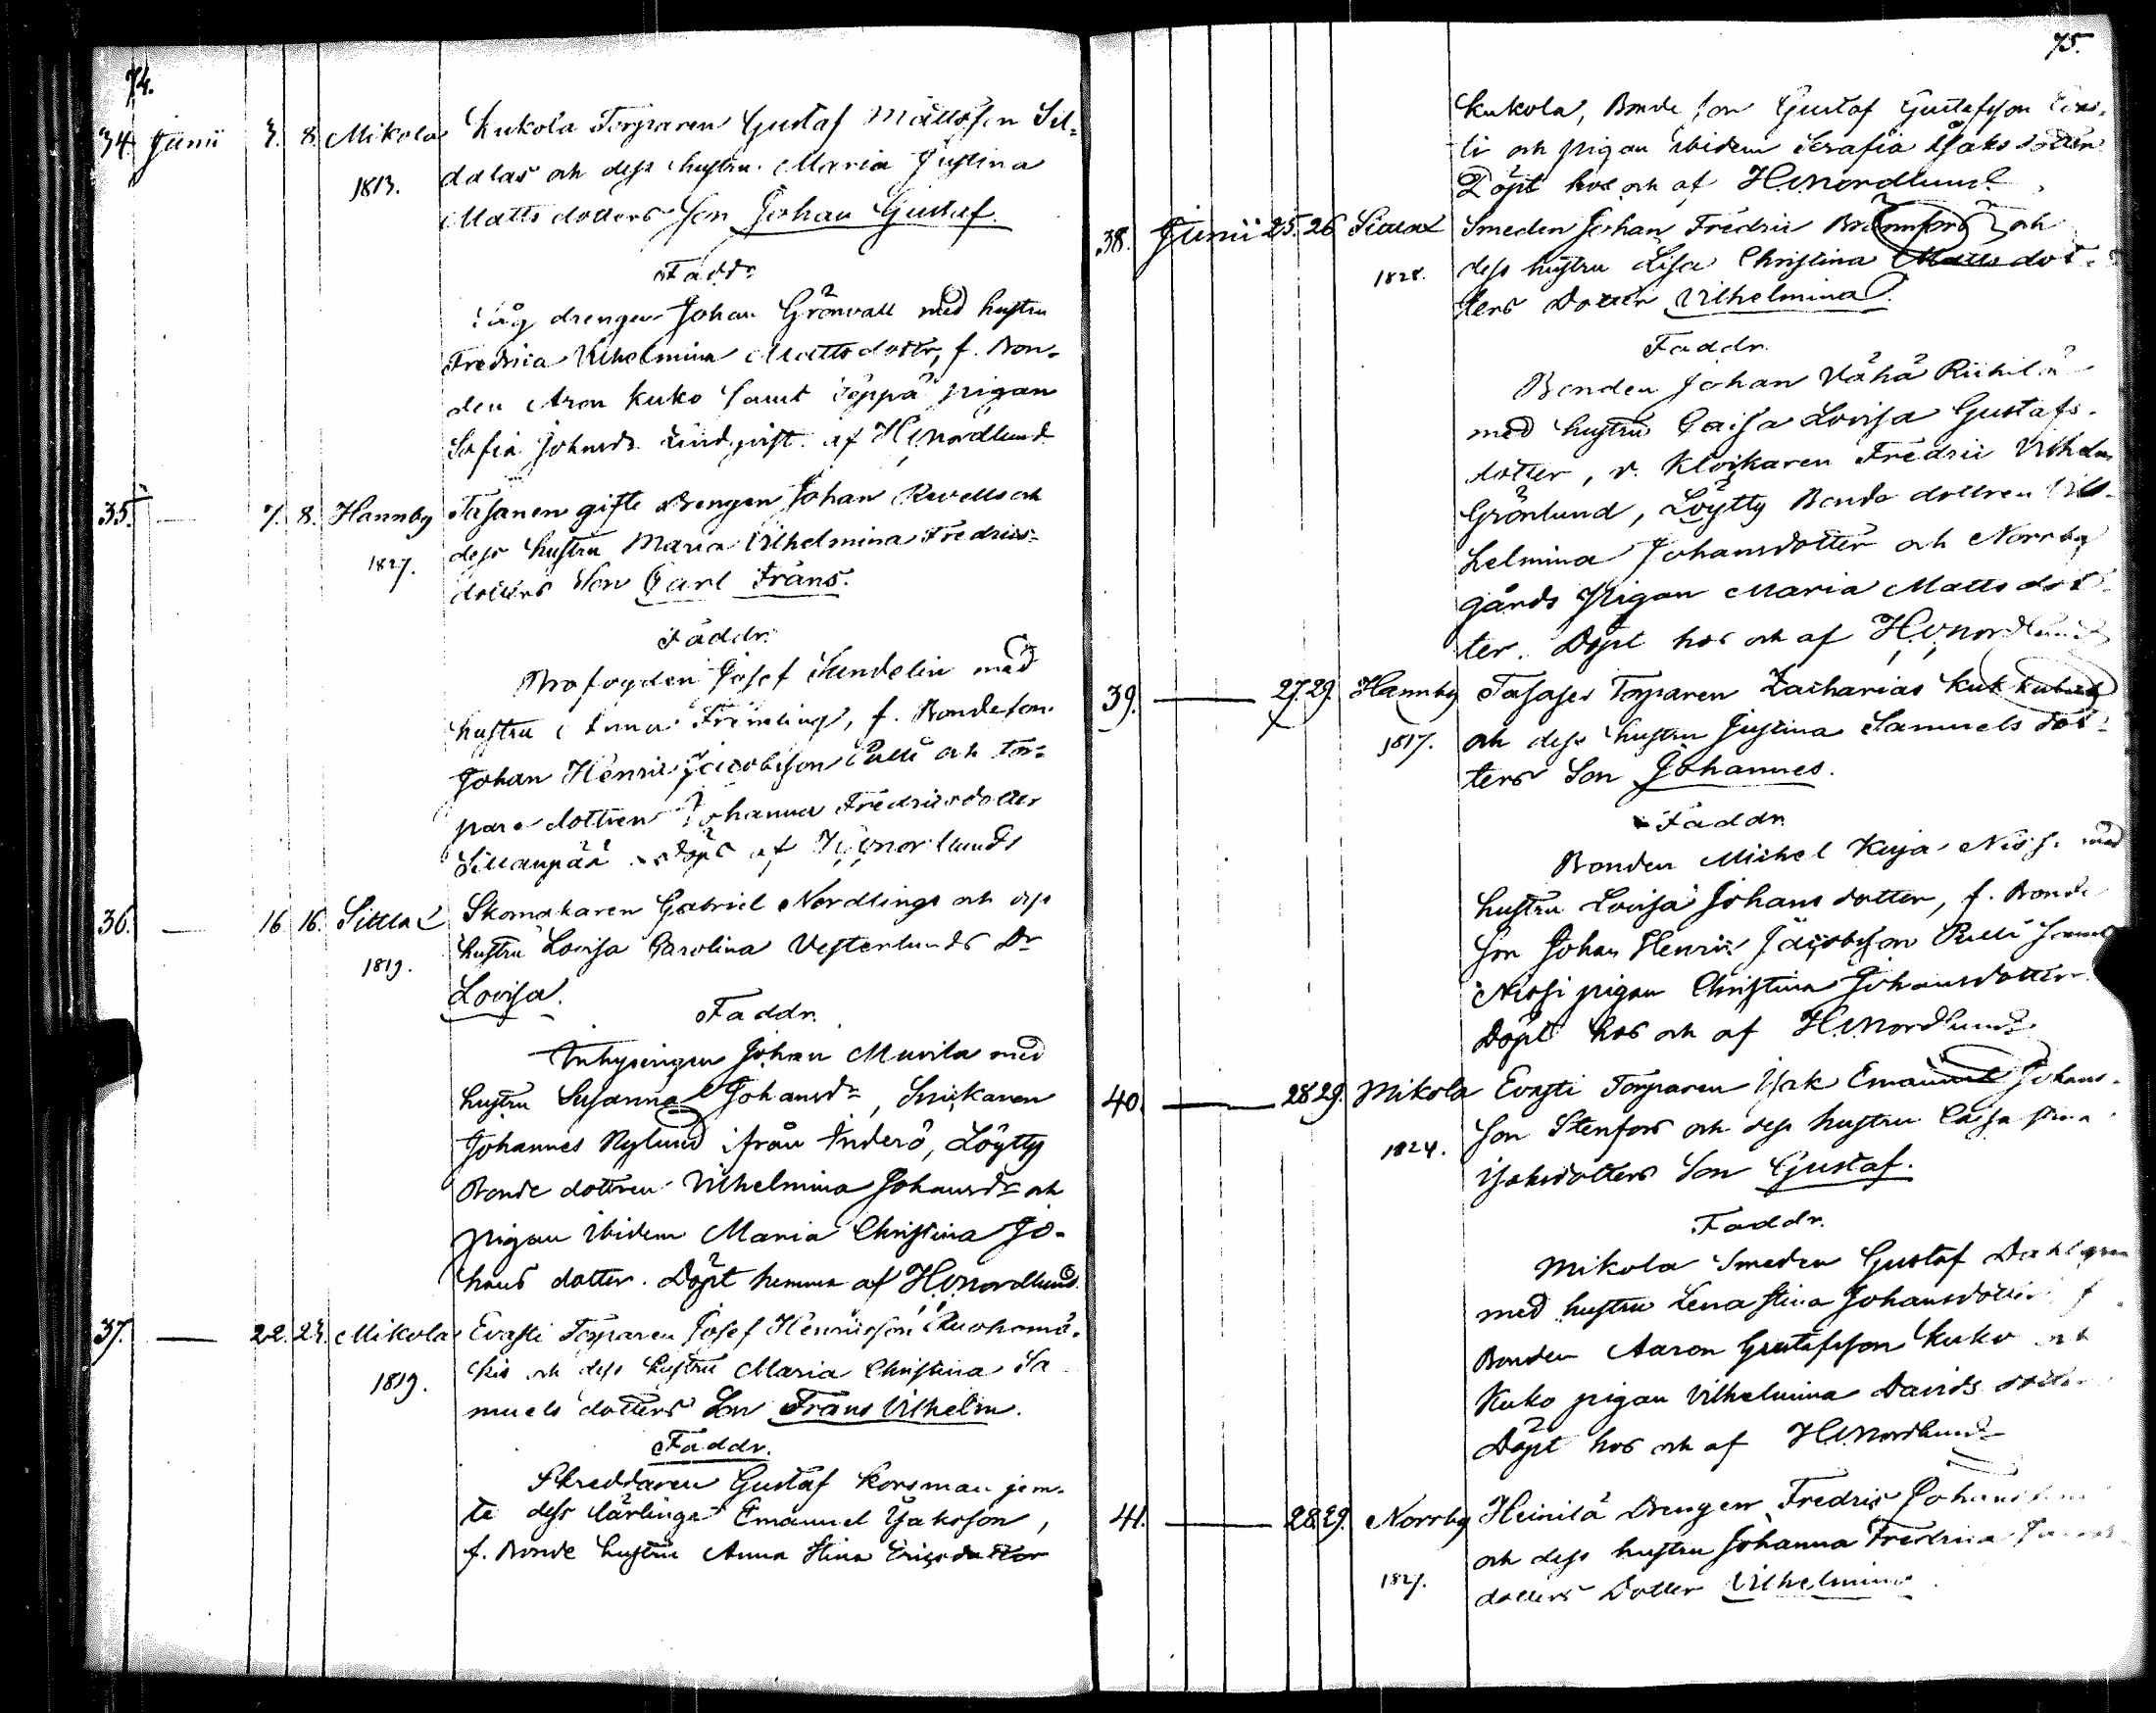 74.
34. Junii 3. 8. Mikola Kukola Torparen Gustaf Mattsson Sil-
1813. dalas och dess hustru Maria Justina
Matts dotters Son Johan Gustaf.
Faddr.
drengen Johan Grönvall med hustru
Fredrica Vilhelmina Mattsdottr, f. Bon-
den Aron Kuko samt Seppä pigan
Sofia Johansdr. Lindqvist. af H. Nordlund
35. — 7. 8. Hannby Tasanen gifte Drengen Johan Revells och
1827. dess hustru Maria Vilhelmina Fredrics-
dotters Son Carl Frans.
Faddr.
Brofogden Josef Sundelin med
hustru Anna Främling, f. Bondeson
Johan Henric Jacobsson Pelli och Tor-
pare dottren Johanna Fredricsdotter
Sillanpää Döpt af H. Nordlund
36. — 16 16. Sittla Skomakaren Gabriel Nordlings och dess
1819. hustru Lovisa Carolina Vesterlunds Dr
Lovisa.
Faddr.
Inhysingen Johan Murila med
hustru Susanna Johansdr, Snickaren
Johannes Nylund ifrån Inderö, Löytty
Bonde dottren Vilhelmina Johansdr och
pigan ibidem Maria Christina Jo-
hans dotter. Döpt hemma af H. Nordlund
37. — 22. 24. Mikola Evasti Torparen Josef Henricsson Ruohomä-
1819. kis och dess hustru Maria Christina Sa
muels dotters Son Frans Vilhelm.
Faddr.
Skreddaren Gustaf Korsman jem-
te dess lärlinge Emanuel Isaksson,
f. Bonde hustru Anna Stina Ericsdotter
75.
Kukola, Bonde son Gustaf Gustafsson Evas-
ti och pigan ibidem Serafia Isaks dotter
Döpt hos och af H. Nordlund.
38. Junii 25. 26 Smeden Johan Fredric Brännfors och
1828. dess hustru Lisa Christina Matts dot-
ters Dotter Vilhelmina.
Faddr.
Bonden Johan Vähä Riihilä
med hustru Caisa Lovisa Gustafs-
dotter, v. Klockaren Fredric Vilhelm
Grönlund, Löytty Bonde dottren Vil-
helmina Johansdotter och Norrby
gårds Pigan Maria Matts dot
ter. Döpt hos och af H. Nordlund
39. — 27. 29. Hannby Torparen Zacharias
1817. och dess hustru Justina Samuels dot-
ters Son Johannes.
Faddr.
Bonden Michel Kuja Nissi med
hustru Lovisa Johans dotter, f. Bonde
son Johan Henric Jacobsson Pelli samt
Nissi pigan Christina Johansdotter
Döpt hos och af H. Nordlund.
40. — 28 29. Mikola Evasti Torparen Isak Emanuel Johans-
1824. son Stenfors och dess hustru Caisa Stina
Isaksdotters Son Gustaf.
Faddr.
Mikola Smeden Gustaf Dahlgren
med hustru Lena Stina Johansdotter f.
Bonden Aaron Gustafsson Kuko och
Kuko pigan Vilhelmina Davids dotter
Döpt hos och af H. Nordlund
41. — 28 29. Norrby Heinilä Drengen Fredric Johansson
1827. och dess hustru Johanna Fredrica
dotters Dotter Vilhelmina